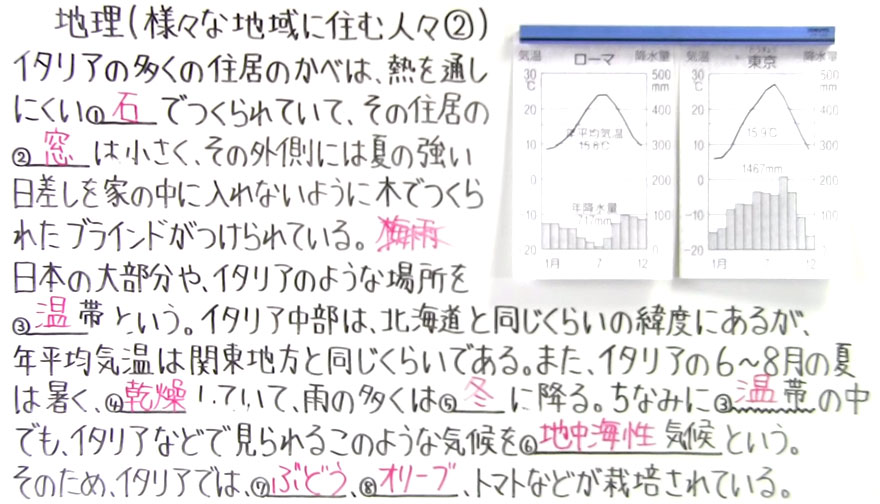 地理(様々な地域に住む人々②)
イタリアの多くの住居のかべは、熱を通し
にくい①石でつくられていて、その住居の
②窓は小さく、その外側には夏の強い
日差しを家の中に入れないように木でつくら
れたブラインドがつけられている。梅雨
日本の大部分や、イタリアのような場所を
③温帯という。イタリア中部は、北海道と同じくらいの緯度にあるが、
年平均気温は関東地方と同じくらいである。また、イタリアの6~8月の夏
は暑く、④乾燥していて、雨の多くは⑤冬に降る。ちなみに③温帯の中
でも、イタリアなどで見られるこのような気候を⑥地中海性気候という。
そのため、イタリアでは、⑦ぶどう、⑧オリーブ、トマトなどが栽培されている。
気温 ローマ 降水量
30 ℃ 500 mm
20 400
10 年平均気温 15.6℃ 300
0 200
-10 年降水量 717mm 100
-20 0
1月 7 12
気温 東京 降水量
30 ℃ 500 mm
20 400
10 15.9℃ 300
0 1467mm 200
-10 100
-20 0
1月 7 12